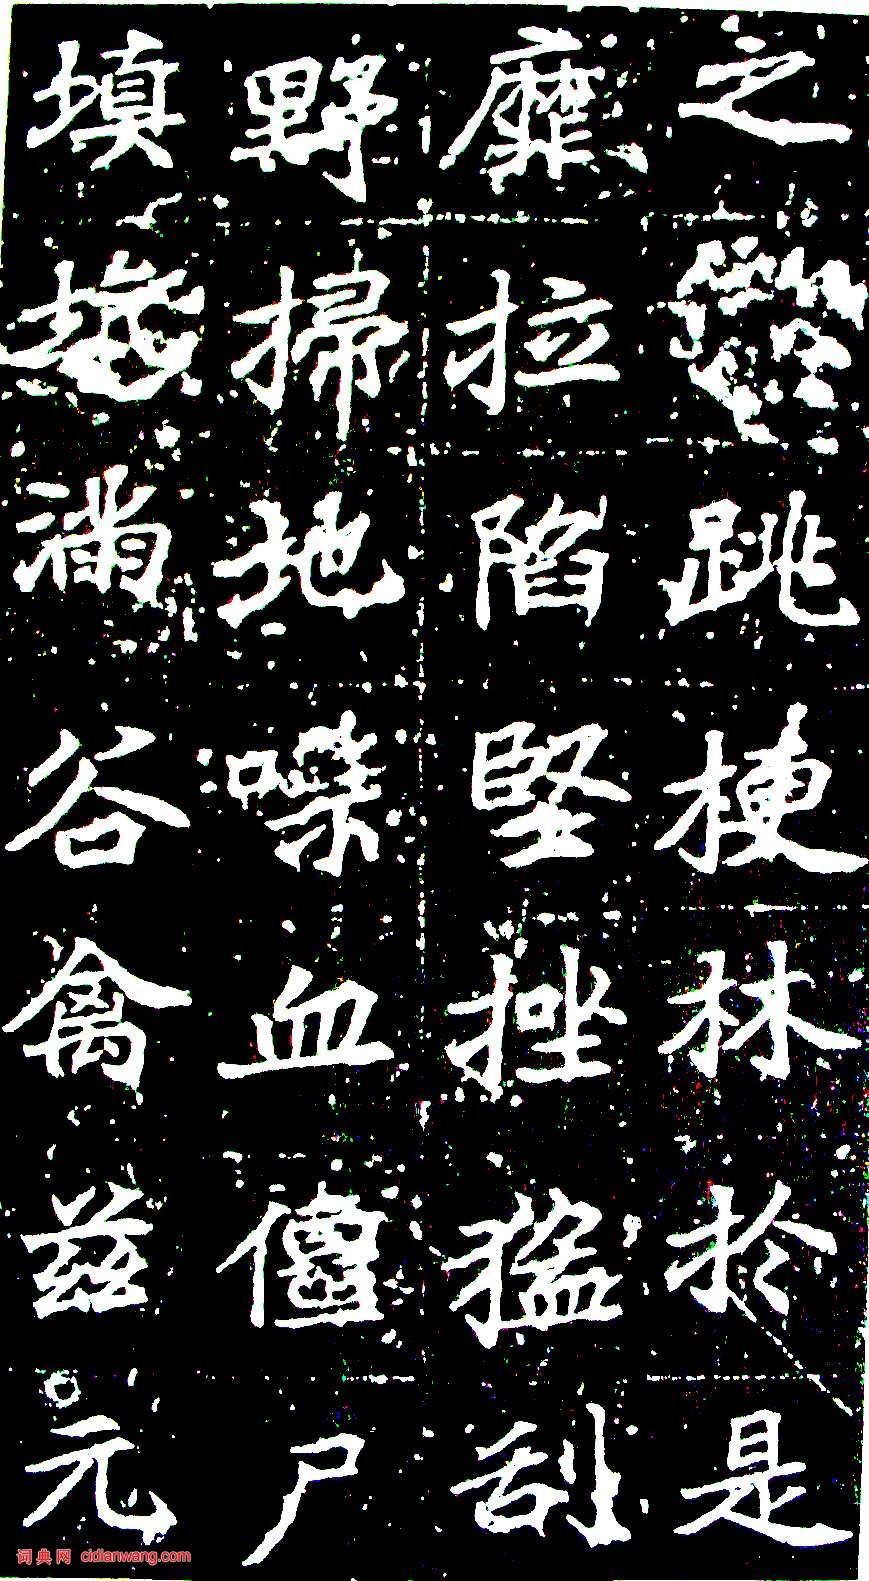 之 跳梗林於是
靡拉陷堅挫猛刮
野掃地噪血僵尸
填 滿谷禽兹元
词典网 cidianwang.com